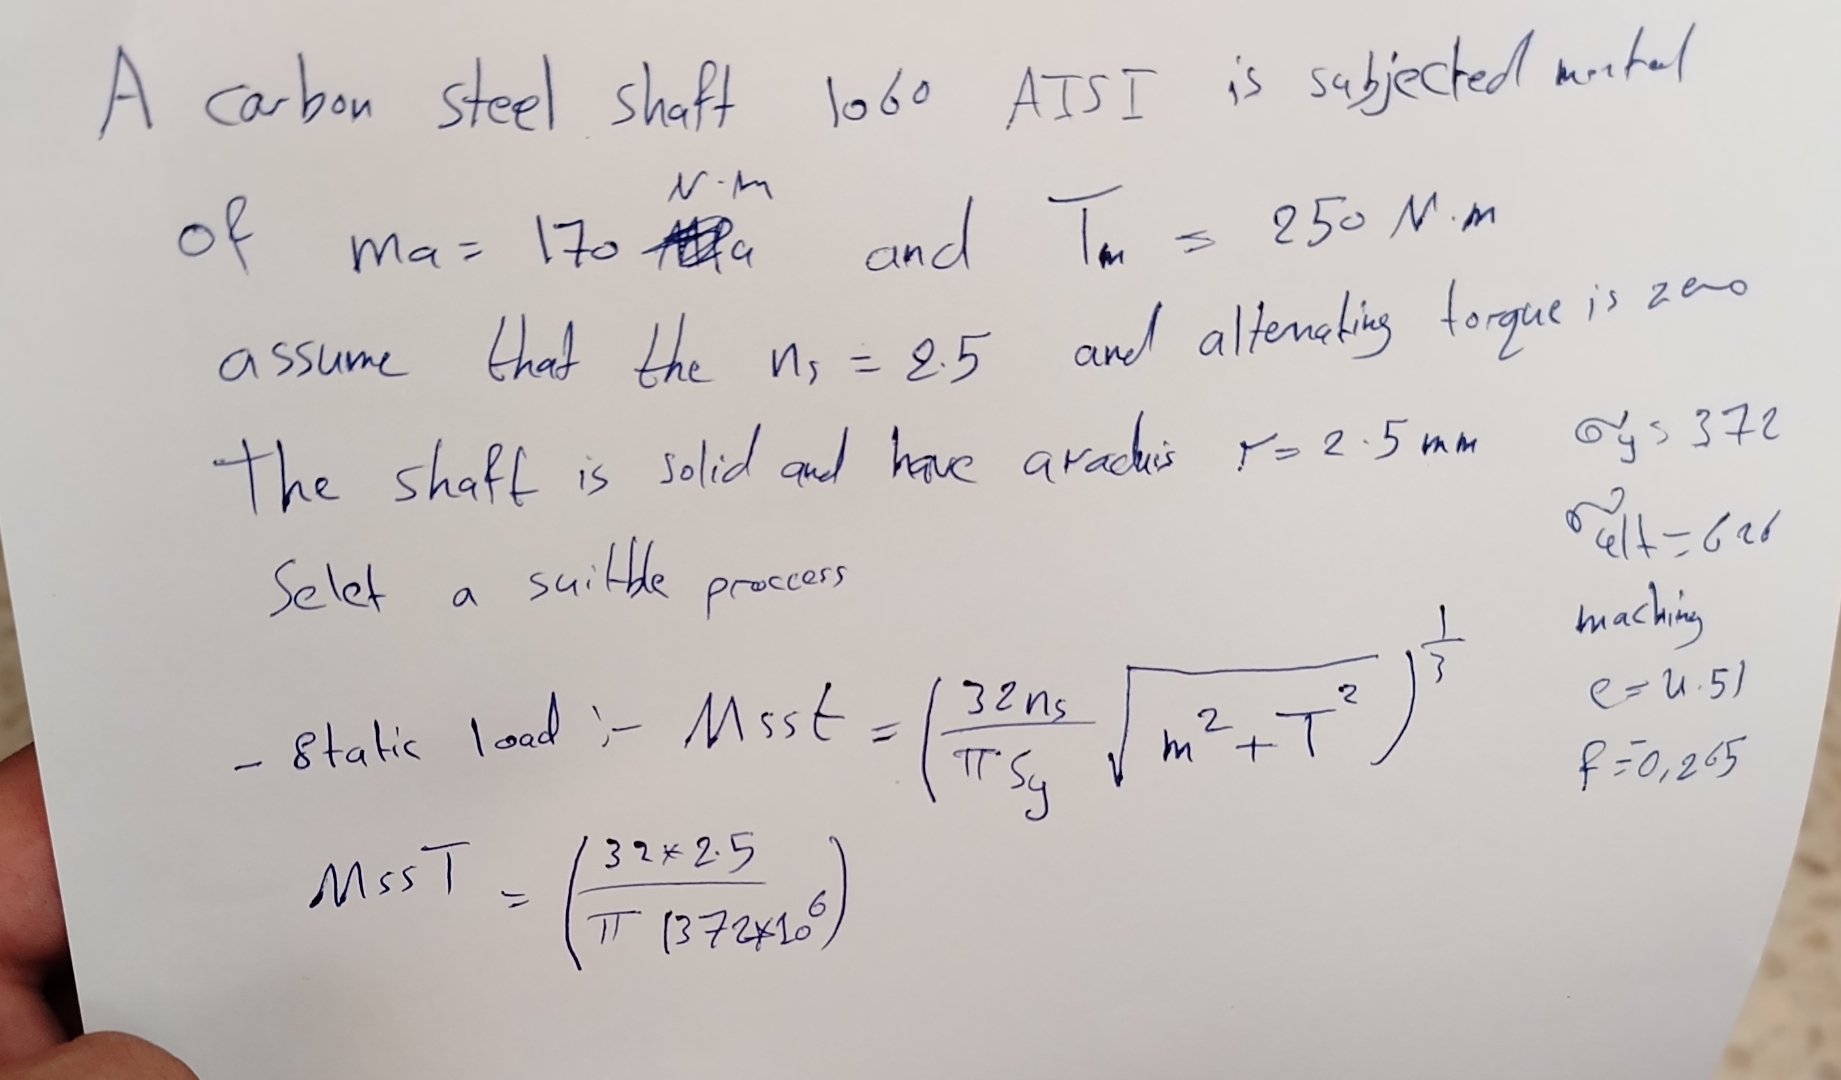 A carbon steel shaft 1060 AISI is subjected
of ma = 170 N.m and Tm = 250 N.m
assume that the ns = 2.5 and alternating torque is zero
The shaft is solid and have aradius r = 2.5 mm
Selet a suitble proccess
σy = 372
σult = 626
maching
e = 4.51
f = 0,265
- Static load :- Msst = (32ns / πSy √(m² + T²))^1/3
MssT = (32*2.5 / π (372*10⁶)